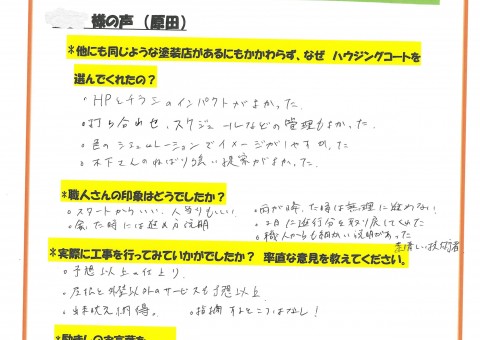 様の声（原田）
*他にも同じような塗装店があるにもかかわらず、なぜ ハウジングコートを
選んでくれたの？
・HPとチラシのインパクトがよかった
・打ち合わせ、スケジュールなどの管理もよかった
・色のシュミレーションでイメージがしやすかった
・木下さんのねばり強い提案がよかった
*職人さんの印象はどうでしたか？
・スタートからいい、人当りもいい。 ・雨が降った時は無理に進めない
・した時には進め方説明 ・に進行分を取り戻してくれた
・職人からも細かい説明があった
素晴しい技術者
*実際に工事を行ってみていかがでしたか？ 率直な意見を教えてください。
・予想以上の仕上り
・屋根と外壁以外のサービスも予想以上
・納得。 ・指摘するところはなし！